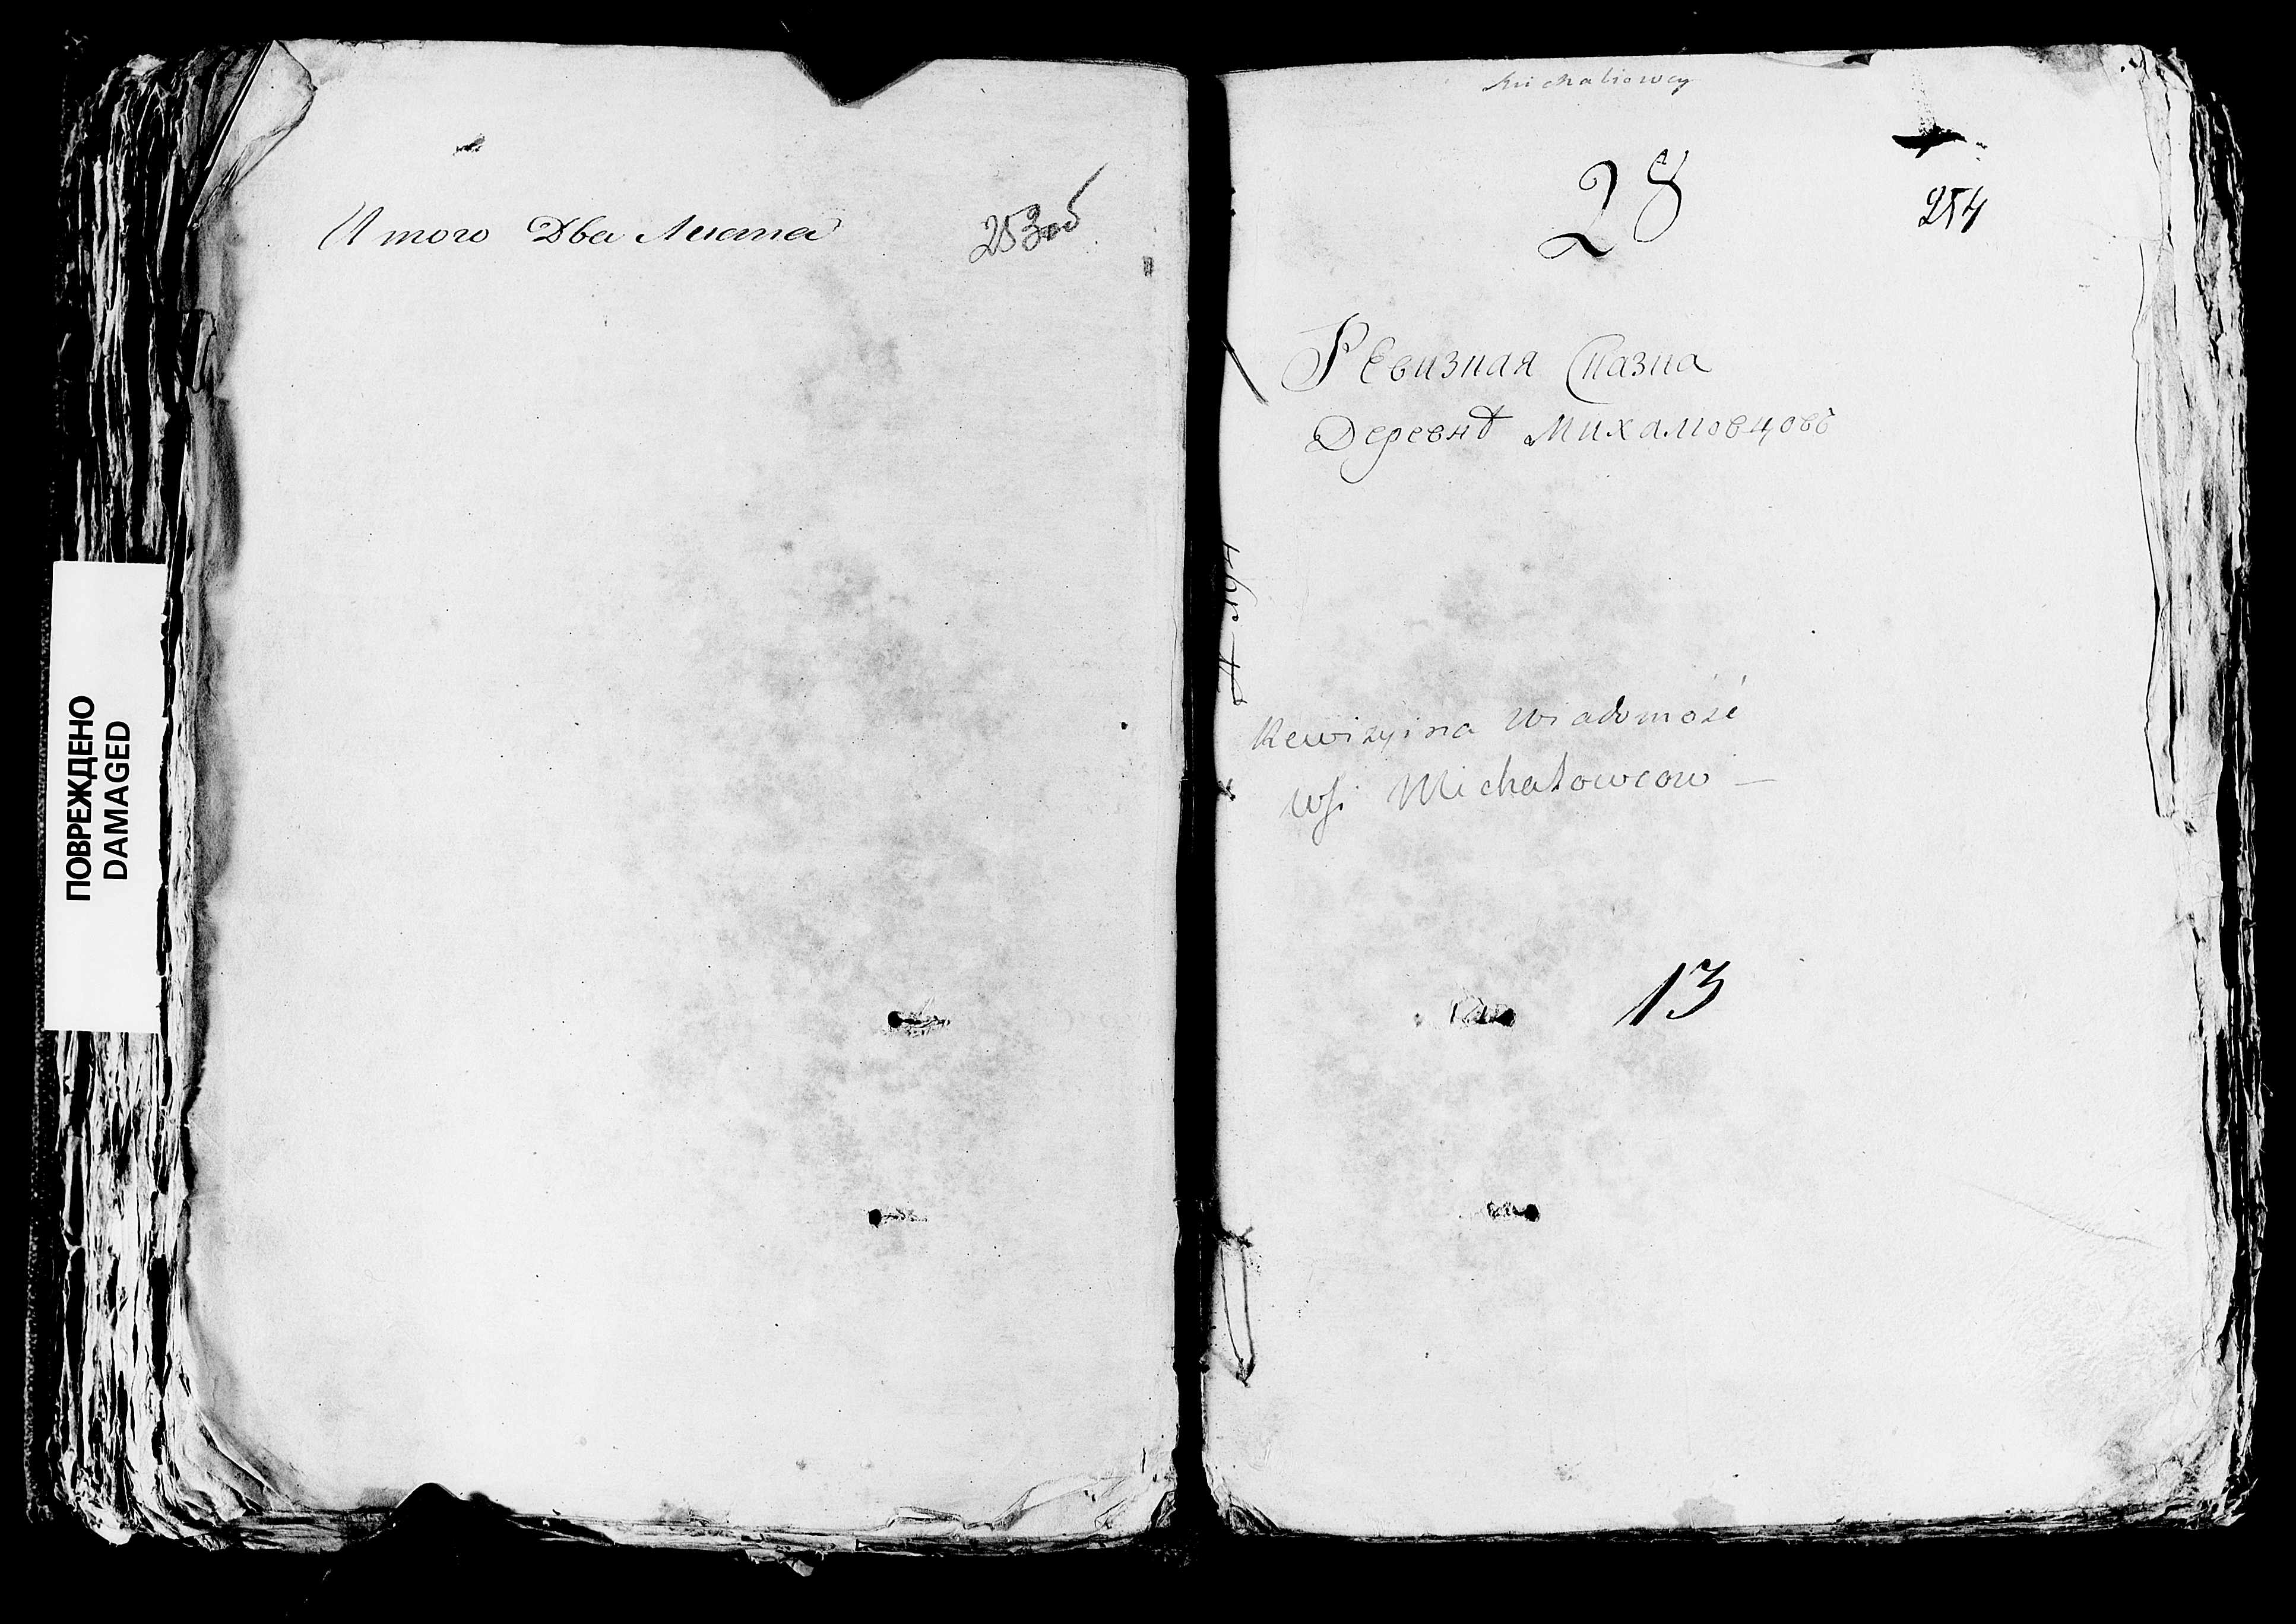 Итого Два Листа 253об
ПОВРЕЖДЕНО
DAMAGED
Michaliowcy
28
254
Ревизная Сказка
Деревнѣ Михаловцовъ
Rewizyina Wiadomość
Wsi Michałowcow —
13